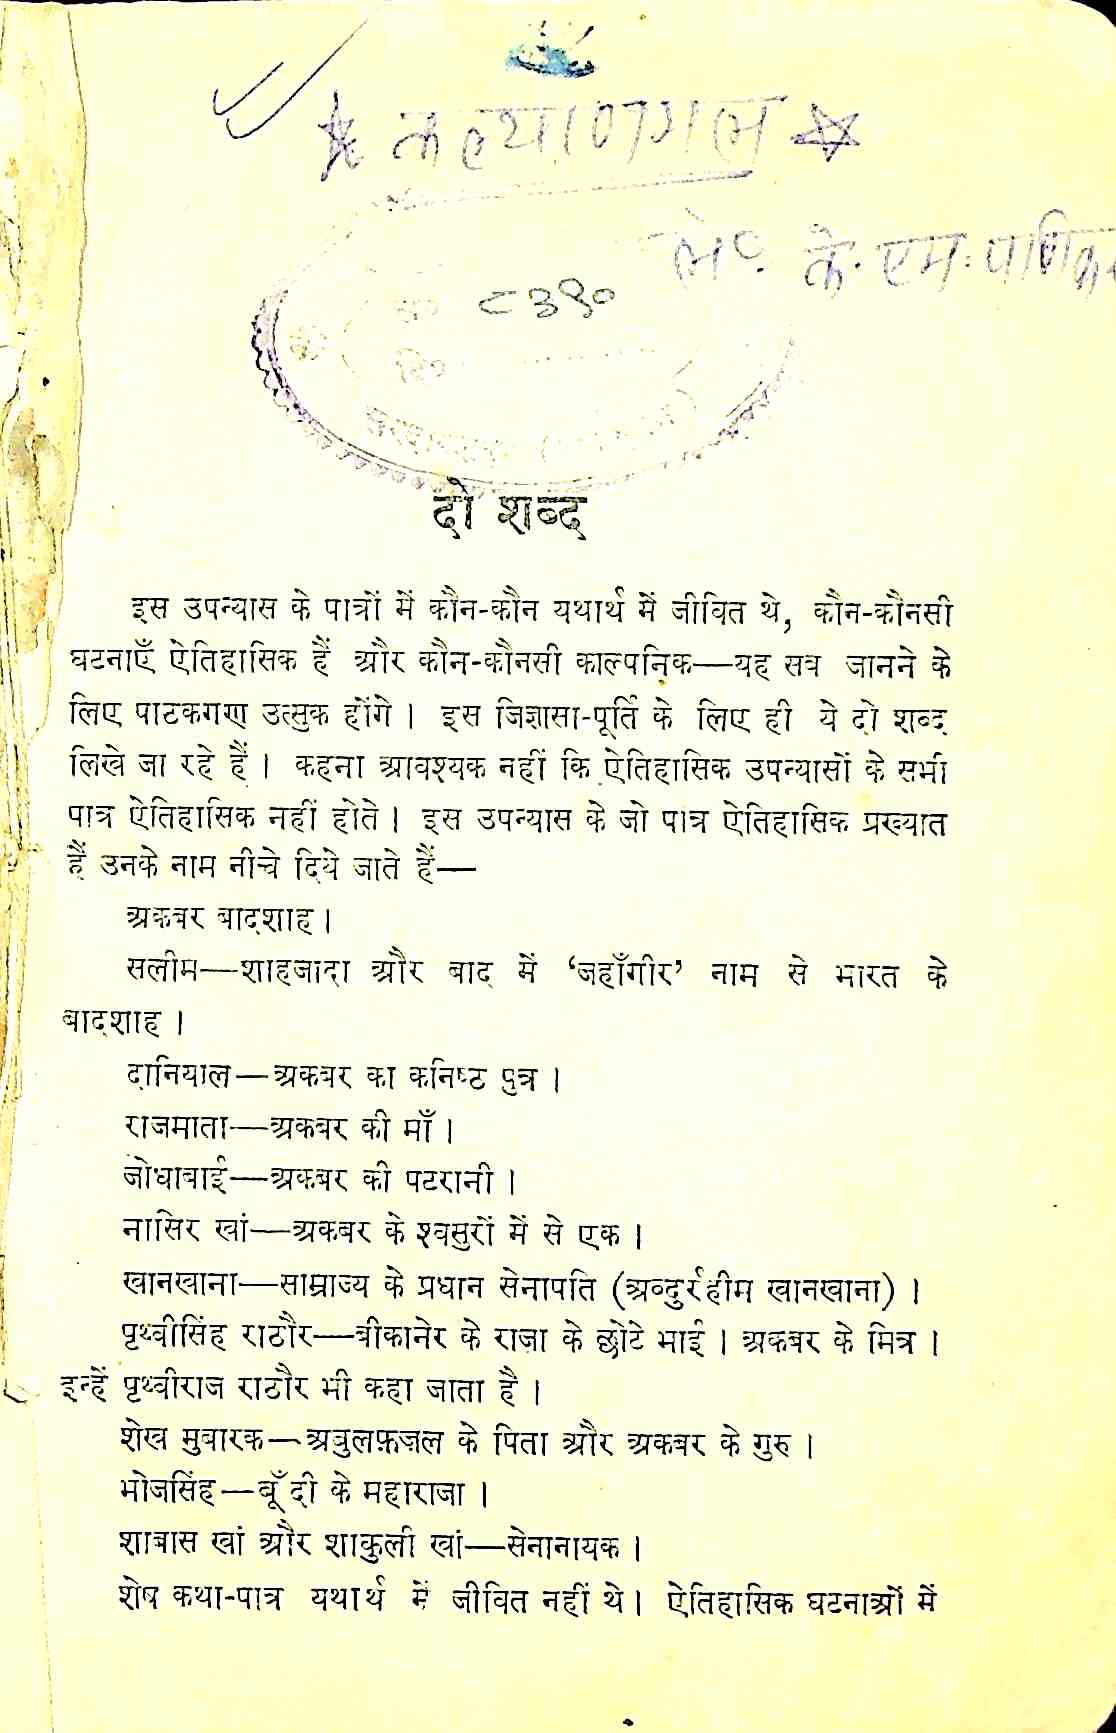 कल्याणमल
ले० के. एम. पाणिकर
८३९०
दो शब्द
इस उपन्यास के पात्रों में कौन-कौन यथार्थ में जीवित थे, कौन-कौनसी
घटनाएँ ऐतिहासिक हैं और कौन-कौनसी काल्पनिक—यह सब जानने के
लिए पाठकगण उत्सुक होंगे। इस जिज्ञासा-पूर्ति के लिए ही ये दो शब्द
लिखे जा रहे हैं। कहना आवश्यक नहीं कि ऐतिहासिक उपन्यासों के सभी
पात्र ऐतिहासिक नहीं होते। इस उपन्यास के जो पात्र ऐतिहासिक प्रख्यात
हैं उनके नाम नीचे दिये जाते हैं—
अकबर बादशाह।
सलीम—शाहजादा और बाद में ‘जहाँगीर’ नाम से भारत के
बादशाह।
दानियाल—अकबर का कनिष्ट पुत्र।
राजमाता—अकबर की माँ।
जोधाबाई—अकबर की पटरानी।
नासिर खां—अकबर के श्वसुरों में से एक।
खानखाना—साम्राज्य के प्रधान सेनापति (अब्दुर्रहीम खानखाना)।
पृथ्वीसिंह राठौर—बीकानेर के राजा के छोटे भाई। अकबर के मित्र।
इन्हें पृथ्वीराज राठौर भी कहा जाता है।
शेख मुबारक—अबुलफ़ज़ल के पिता और अकबर के गुरु।
भोजसिंह—बूँदी के महाराजा।
शाबास खां और शाकुली खां—सेनानायक।
शेष कथा-पात्र यथार्थ में जीवित नहीं थे। ऐतिहासिक घटनाओं में